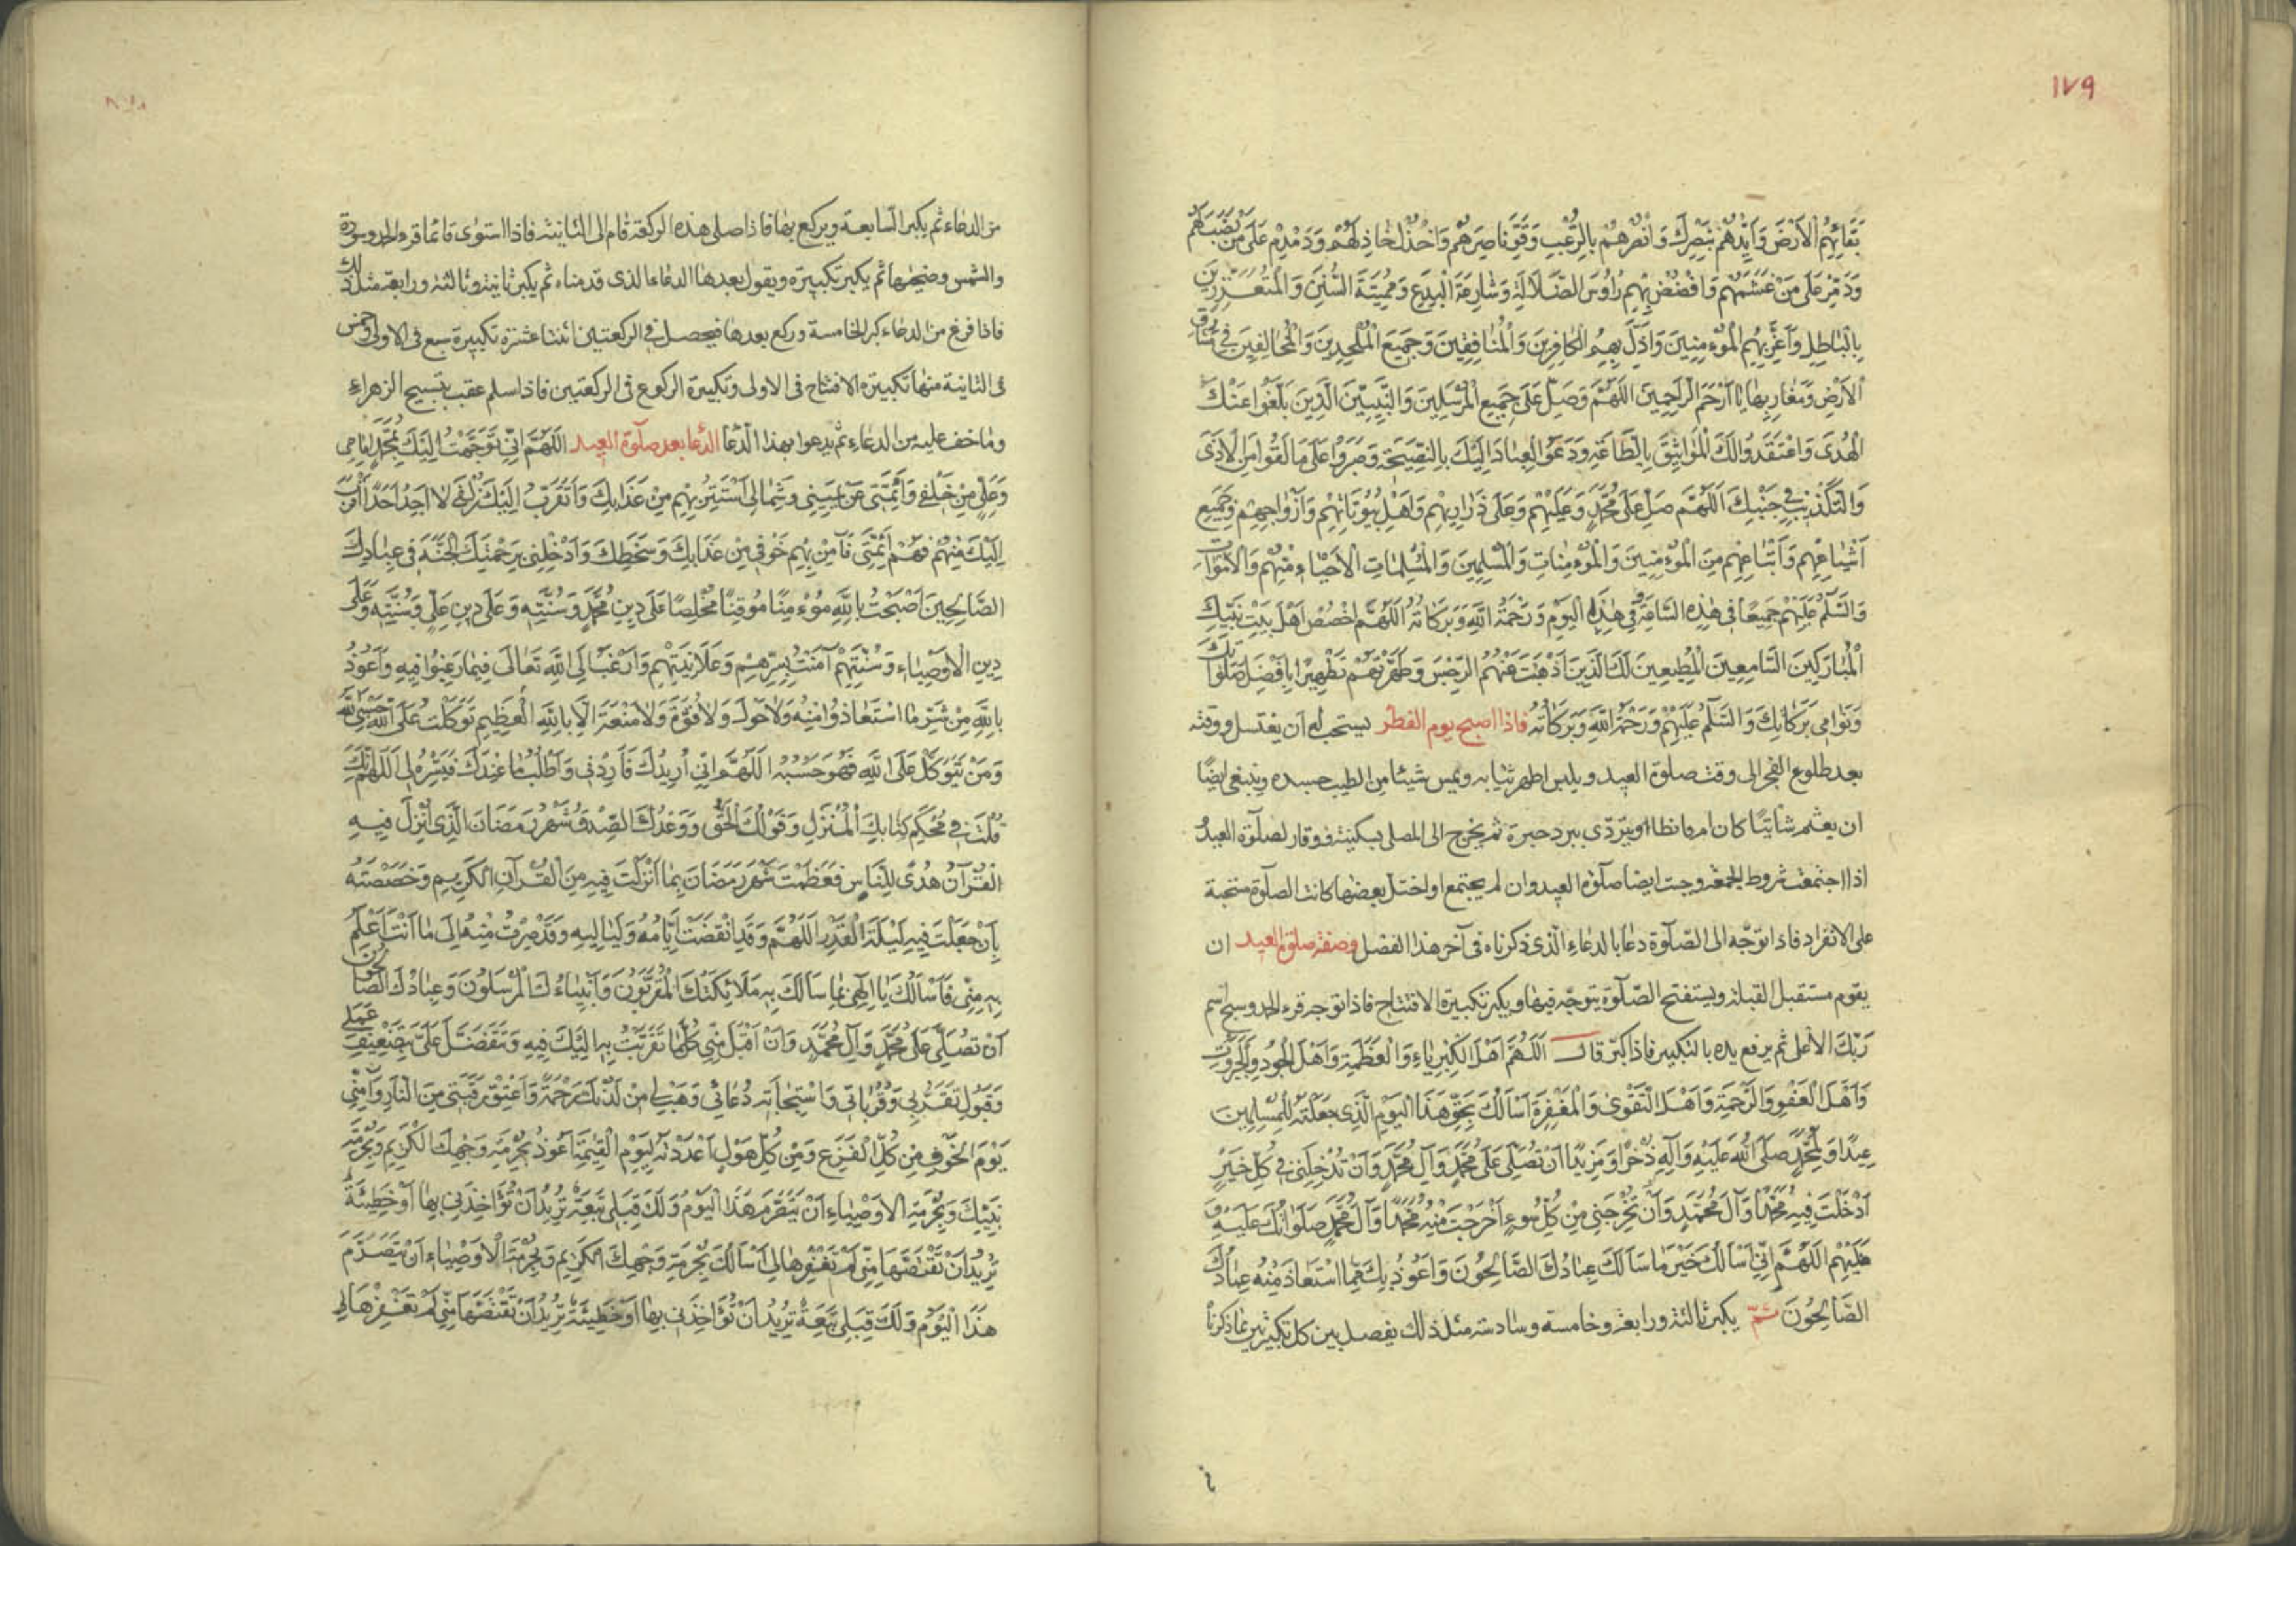 ١٧٩
بَقَائِهِمُ الْاَرْضَ وَاَيِّدْهُمْ بِنَصْرِكَ وَانْصُرْهُمْ بِالرُّعْبِ وَقَوِّ نَاصِرَهُمْ وَاخْذُلْ خَاذِلَهُمْ وَدَمْدِمْ عَلَى مَنْ نَصَبَ لَهُمْ
وَدَمِّرْ عَلَى مَنْ غَشَمَهُمْ وَافْضُضْ بِهِمْ رُاوُسَ الضَّلَالَةِ وَشَارِعَةَ الْبِدَعِ وَمُمِيتَةَ السُّنَنِ وَالْمُتَعَزِّزِينَ
بِالْبَاطِلِ وَاَعِزَّ بِهِمُ الْمُؤْمِنِينَ وَاَذِلَّ بِهِمُ الْكَافِرِينَ وَالْمُنَافِقِينَ وَجَمِيعَ الْمُلْحِدِينَ وَالْمُخَالِفِينَ فِي مَشَارِقِ
الْاَرْضِ وَمَغَارِبِهَا يَا اَرْحَمَ الرَّاحِمِينَ اَللّهُمَّ وَصَلِّ عَلَى جَمِيعِ الْمُرْسَلِينَ وَالنَّبِيِّينَ الَّذِينَ بَلَّغُوا عَنْكَ
الْهُدَى وَاعْتَقَدُوا لَكَ الْمَوَاثِيقَ بِالطَّاعَةِ وَدَعَوُا الْعِبَادَ اِلَيْكَ بِالنَّصِيحَةِ وَصَبَرُوا عَلَى مَا لَقُوا مِنَ الْاَذَى
وَالتَّكْذِيبِ فِي جَنْبِكَ اَللّهُمَّ صَلِّ عَلَى مُحَمَّدٍ وَعَلَيْهِمْ وَعَلَى ذَرَارِيهِمْ وَاَهْلِ بُيُوتَاتِهِمْ وَاَزْوَاجِهِمْ وَجَمِيعِ
اَشْيَاعِهِمْ وَاَتْبَاعِهِمْ مِنَ الْمُؤْمِنِينَ وَالْمُؤْمِنَاتِ وَالْمُسْلِمِينَ وَالْمُسْلِمَاتِ الْاَحْيَاءِ مِنْهُمْ وَالْاَمْوَاتِ
وَالسَّلَمُ عَلَيْهِمْ جَمِيعًا فِي هَذِهِ السَّاعَةِ وَفِي هَذَا الْيَوْمِ وَرَحْمَةُ اللّهِ وَبَرَكَاتُهُ اَللّهُمَّ اخْصُصْ اَهْلَ بَيْتِ نَبِيِّكَ
الْمُبَارَكِينَ السَّامِعِينَ الْمُطِيعِينَ لَكَ الَّذِينَ اَذْهَبْتَ عَنْهُمُ الرِّجْسَ وَطَهَّرْتَهُمْ تَطْهِيرًا بِاَفْضَلِ صَلَوَاتِكَ
وَنَوَامِي بَرَكَاتِكَ وَالسَّلَمُ عَلَيْهِمْ وَرَحْمَةُ اللّهِ وَبَرَكَاتُهُ فاذا اصبح يوم الفطر يستحب له ان يغتسل ووقته
بعد طلوع الفجر الى وقت صلوة العيد ويلبس اطهر ثيابه ويمس شيئا من الطيب جسده وينبغى ايضًا
ان يعتم شاتيًا كان ام قائظا او يتردّى ببرد حبرة ثم يخرج الى المصلى بسكينة ووقار لصلوة العيد
اذا اجتمعت شروط الجمعة وجبت ايضا صلوة العيد وان لم يجتمع او اختل بعضها كانت الصلوة مستحبة
على الانفراد فاذا توجّه الى الصّلوة دعا بالدعاء الذى ذكرناه فى آخر هذا الفصل وصفة صلوة العيد ان
يقوم مستقبل القبلة ويستفتح الصّلوة يتوجّه فيها ويكبر تكبيرة الافتتاح فاذا توجه قرء الحمد وسبّح اسم
رَبّكَ الأعلى ثم يرفع يده بالتكبير فاذا كبّر قال اَللّهُمَّ اَهْلَ الْكِبْرِيَاءِ وَالْعَظَمَةِ وَاَهْلَ الْجُودِ وَالْجَبَرُوتِ
وَاَهْلَ الْعَفْوِ وَالرَّحْمَةِ وَاَهْلَ التَّقْوَى وَالْمَغْفِرَةِ اَسْاَلُكَ بِحَقِّ هَذَا الْيَوْمِ الَّذِي جَعَلْتَهُ لِلْمُسْلِمِينَ
عِيدًا وَلِمُحَمَّدٍ صَلَّى اللّهُ عَلَيْهِ وَآلِهِ ذُخْرًا وَمَزِيدًا اَنْ تُصَلِّيَ عَلَى مُحَمَّدٍ وَآلِ مُحَمَّدٍ وَاَنْ تُدْخِلَنِي فِي كُلِّ خَيْرٍ
اَدْخَلْتَ فِيهِ مُحَمَّدًا وَآلَ مُحَمَّدٍ وَاَنْ تُخْرِجَنِي مِنْ كُلِّ سُوءٍ اَخْرَجْتَ مِنْهُ مُحَمَّدًا وَآلَ مُحَمَّدٍ صَلَوَاتُكَ عَلَيْهِ وَ
عَلَيْهِمْ اَللّهُمَّ اِنِّي اَسْاَلُكَ خَيْرَ مَا سَاَلَكَ عِبَادُكَ الصَّالِحُونَ وَاَعُوذُ بِكَ مِمَّا اسْتَعَاذَ مِنْهُ عِبَادُكَ
الصَّالِحُونَ ثمّ يكبر ثالثة ورابعة وخامسة وسادسة مثل ذلك يفصل بين كل تكبيرتين بما ذكرناه
من الدعاء ثم يكبر السابعة ويركع بها فاذا صلى هذه الركعة قام الى الثانية فاذا استوى قائما قرء الحمد وسورة
والشمس وضحيها ثم يكبر تكبيرة ويقول بعدها الدعاء الذى قدمناه ثم يكبر ثانية وثالثة ورابعة مثل ذلك
فاذا فرغ من الدعاء كبر الخامسة وركع بعدها فيحصل فى الركعتين اثنتا عشرة تكبيرة سبع فى الاولى وخمس
فى الثانية منها تكبيرة الافتتاح فى الاولى وتكبيرة الركوع فى الركعتين فاذا سلم عقب بتسبيح الزهراء
وما خف عليه من الدعاء ثم يدعوا بهذا الدّعا الدّعا بعد صلوة العيد اَللّهُمَّ اِنِّي تَوَجَّهْتُ اِلَيْكَ بِمُحَمَّدٍ اَمَامِي
وَعَلِيٍّ مِنْ خَلْفِي وَاَئِمَّتِي عَنْ يَمِينِي وَشِمَالِي اَسْتَتِرُ بِهِمْ مِنْ عَذَابِكَ وَاَتَقَرَّبُ اِلَيْكَ زُلْفَى لَا اَجِدُ اَحَدًا اَقْرَبَ
اِلَيْكَ مِنْهُمْ فَهُمْ اَئِمَّتِي فَآمِنْ بِهِمْ خَوْفِي مِنْ عَذَابِكَ وَسَخَطِكَ وَاَدْخِلْنِي بِرَحْمَتِكَ الْجَنَّةَ فِي عِبَادِكَ
الصَّالِحِينَ اَصْبَحْتُ بِاللّهِ مُؤْمِنًا مُوقِنًا مُخْلِصًا عَلَى دِينِ مُحَمَّدٍ وَسُنَّتِهِ وَعَلَى دِينِ عَلِيٍّ وَسُنَّتِهِ وَعَلَى
دِينِ الْاَوْصِيَاءِ وَسُنَّتِهِمْ آمَنْتُ بِسِرِّهِمْ وَعَلَانِيَتِهِمْ وَاَرْغَبُ اِلَى اللّهِ تَعَالَى فِيمَا رَغِبُوا فِيهِ وَاَعُوذُ
بِاللّهِ مِنْ شَرِّ مَا اسْتَعَاذُوا مِنْهُ وَلَا حَوْلَ وَلَا قُوَّةَ وَلَا مَنْعَةَ اِلَّا بِاللّهِ الْعَظِيمِ تَوَكَّلْتُ عَلَى اللّهِ حَسْبِيَ اللّهُ
وَمَنْ يَتَوَكَّلْ عَلَى اللّهِ فَهُوَ حَسْبُهُ اَللّهُمَّ اِنِّي اُرِيدُكَ فَاَرِدْنِي وَاَطْلُبُ مَا عِنْدَكَ فَيَسِّرْهُ لِي اَللّهُمَّ اِنَّكَ
قُلْتَ فِي مُحْكَمِ كِتَابِكَ الْمُنْزَلِ وَقَوْلُكَ الْحَقُّ وَوَعْدُكَ الصِّدْقُ شَهْرُ رَمَضَانَ الَّذِي اُنْزِلَ فِيهِ
الْقُرْآنُ هُدًى لِلنَّاسِ فَعَظَّمْتَ شَهْرَ رَمَضَانَ بِمَا اَنْزَلْتَ فِيهِ مِنَ الْقُرْآنِ الْكَرِيمِ وَخَصَصْتَهُ
بِاَنْ جَعَلْتَ فِيهِ لَيْلَةَ الْقَدْرِ اَللّهُمَّ وَقَدِ انْقَضَتْ اَيَّامُهُ وَلَيَالِيهِ وَقَدْ صِرْتُ مِنْهُ اِلَى مَا اَنْتَ اَعْلَمُ
بِهِ مِنِّي فَاَسْاَلُكَ يَا اِلَهِي بِمَا سَاَلَكَ بِهِ مَلَائِكَتُكَ الْمُقَرَّبُونَ وَاَنْبِيَاءُكَ الْمُرْسَلُونَ وَعِبَادُكَ الصَّالِحُونَ
اَنْ تُصَلِّيَ عَلَى مُحَمَّدٍ وَآلِ مُحَمَّدٍ وَاَنْ تَقْبَلَ مِنِّي كُلَّمَا تَقَرَّبْتُ بِهِ اِلَيْكَ فِيهِ وَتَتَفَضَّلَ عَلَيَّ بِتَضْعِيفِ عَمَلِي
وَقَبُولِ تَقَرُّبِي وَقُرُبَاتِي وَاسْتِجَابَةِ دُعَائِي وَهَبْ لِي مِنْ لَدُنْكَ رَحْمَةً وَاَعْتِقْ رَقَبَتِي مِنَ النَّارِ وَآمِنِّي
يَوْمَ الْخَوْفِ مِنْ كُلِّ الْفَزَعِ وَمِنْ كُلِّ هَوْلٍ اَعْدَدْتَهُ لِيَوْمِ الْقِيَمَةِ اَعُوذُ بِحُرْمَةِ وَجْهِكَ الْكَرِيمِ وَبِحُرْمَةِ
نَبِيِّكَ وَبِحُرْمَةِ الْاَوْصِيَاءِ اَنْ يَتَصَرَّمَ هَذَا الْيَوْمُ وَلَكَ قِبَلِي تَبِعَةٌ تُرِيدُ اَنْ تُؤَاخِذَنِي بِهَا اَوْ خَطِيئَةٌ
تُرِيدُ اَنْ تَقْتَصَّهَا مِنِّي لَمْ تَغْفِرْهَا لِي اَسْاَلُكَ بِحُرْمَةِ وَجْهِكَ الْكَرِيمِ وَبِحُرْمَةِ الْاَوْصِيَاءِ اَنْ يَتَصَرَّمَ
هَذَا الْيَوْمُ وَلَكَ قِبَلِي تَبِعَةٌ تُرِيدُ اَنْ تُؤَاخِذَنِي بِهَا اَوْ خَطِيئَةٌ تُرِيدُ اَنْ تَقْتَصَّهَا مِنِّي لَمْ تَغْفِرْهَا لِي